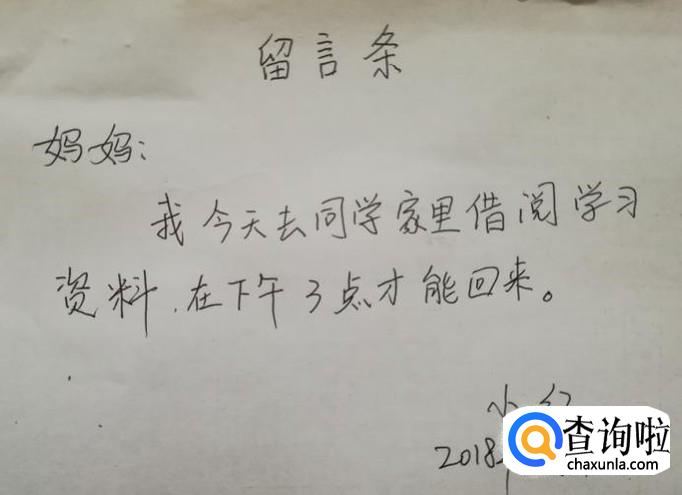 留言条
妈妈:
我今天去同学家里借阅学习
资料,在下午3点才能回来。
小红
2018
查询啦
chaxunla.com